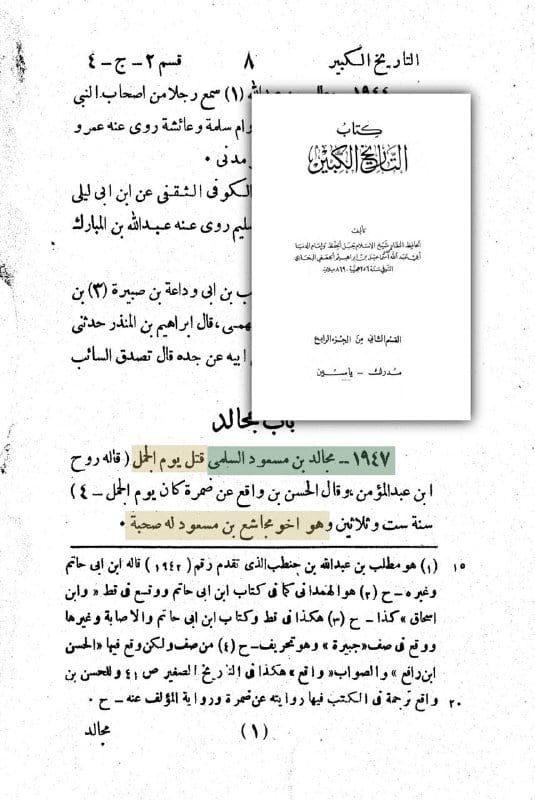 التاريخ الكبير ٨ قسم ٢ - ج - ٤
الله (١) سمع رجلا من اصحاب النبي
وام سلمة وعائشة روى عنه عمرو
مدنى ٠
الكوفى الثقفى عن ابن ابى ليلى
روى عنه عبدالله بن المبارك
بن ابى وداعة بن صبيرة (٣) بن
قال ابراهيم بن المنذر حدثنى
ابيه عن جده قال تصدق السائب
كتاب
التاريخ الكبير
تأليف
القسم الثانى من الجزء الرابع
مدرك - ياسين
باب مجالد
١٩٤٧ - مجالد بن مسعود السلمى قتل يوم الجمل (قاله روح
ابن عبدالمؤمن، وقال الحسن بن واقع عن ضمرة كان يوم الجمل - ٤)
سنة ست وثلاثين وهو اخو مجاشع بن مسعود له صحبة ٠
(١) هو مطلب بن عبدالله بن حنطب الذى تقدم رقم (١٩٤٢) قاله ابن ابى حاتم ١٥
وغيره - ح (٢) هو الهمدانى كما فى كتاب ابن ابى حاتم ووقع فى قط « وابن
اسحاق » كذا - ح (٣) هكذا فى قط وكتاب ابن ابى حاتم والاصابة وغيرها
ووقع فى صف « جبيرة » وهو تحريف - ح (٤) من صف ولكن وقع فيها « الحسن
ابن رافع » والصواب « واقع » هكذا فى التاريخ الصغير ص ٤١ وللحسن بن
واقع ترجمة فى الكتب فيها روايته عن ضمرة ورواية المؤلف عنه - ح ٠ ٢٠
(١) مجالد